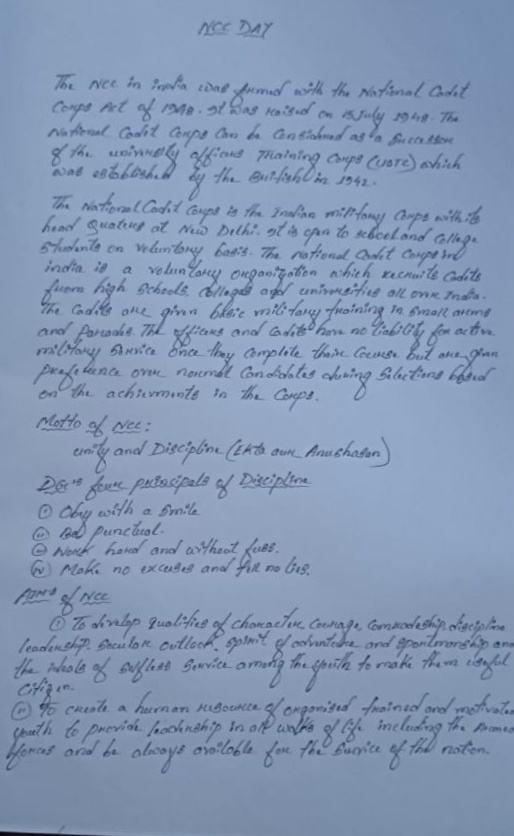 NCC DAY
The NCC in india was formed with the National Cadet
Corps Act of 1948. It was raised on 15 July 1948. The
National Cadet Corps Can be Considered as a Successor
of the university officers Training Corps (UOTC) which
was established by the British in 1942.
The National Cadit Corps is the Indian military Corps with its
head Quaters at New Delhi. It is open to school and College
Students on Voluntary basis. The National Cadit Corps in
india is a voluntary organization which recruits Cadits
from high Schools, Colleges and universities all over India.
The Cadits are given basic military training in Small arms
and Parades. The officers and Cadits have no liability for active
military Service once they complete their Course but are given
preference over normal Candidates during Selections based
on the achievments in the Corps.
Motto of NCC:
unity and Discipline (Ekta aur Anushasan)
DG's four principals of Discipline
(i) Oby with a Smile
(ii) punctual.
(iii) Work hard and without fuss.
(iv) Make no excuses and no lies.
Aims of NCC
(i) To develop qualities of character, Courage, Comradeship, discipline
leadership, Secular outlook, Spirit of adventure and Sportmanship and
the ideals of Selfless Service among the youth to make them useful
Citizen.
(ii) To create a human resource of organised trained and motivated
youth to provide leadership in all walks of life including the Armed
forces and be always available for the Service of the nation.